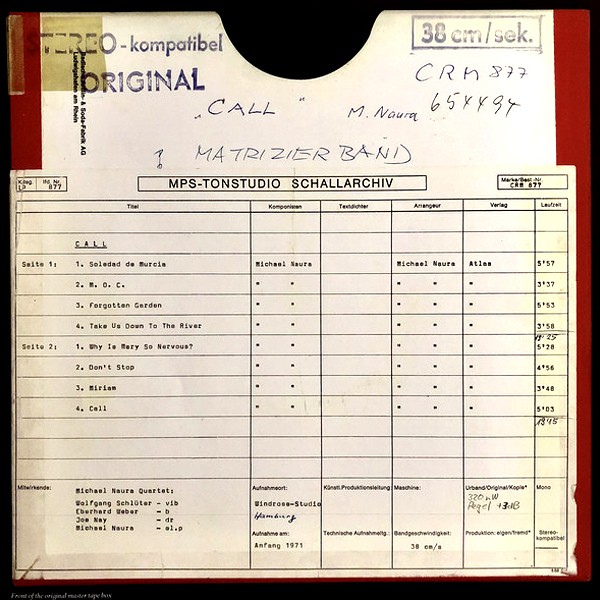 STEREO-kompatibel
38 cm/sek.
ORIGINAL
CRM 877
"CALL"
M. Naura 654494
MATRIZIERBAND
Ludwigshafen am Rhein
& Soda-Fabrik AG
Kateg. lfd. Nr.
LP 877
MPS-TONSTUDIO SCHALLARCHIV
Marke/Best.-Nr.
CRM 877
Titel Komponisten Textdichter Arrangeur Verlag Laufzeit
CALL
Seite 1: 1. Soledad de Murcia Michael Naura Michael Naura Atlas 5'57
2. M. O. C. " " " " " 3'37
3. Forgotten Garden " " " " " 5'53
4. Take Us Down To The River " " " " " 3'58
19'25
Seite 2: 1. Why Is Mary So Nervous? " " " " " 5'28
2. Don't Stop " " " " " 4'56
3. Miriam " " " " " 3'48
4. Call " " " " " 5'03
19'15
Mitwirkende:
Michael Naura Quartet:
Wolfgang Schlüter - vib
Eberhard Weber - b
Joe Nay - dr
Michael Naura - el.p
Aufnahmeort:
Windrose-Studio
Hamburg
Aufnahme am:
Anfang 1971
Künstl. Produktionsleitung:
Technische Aufnahmeltg.:
Maschine:
Bandgeschwindigkeit:
38 cm/s
Urband/Original/Kopie*
320 nW
Pegel +3dB
Produktion: eigen/fremd*
Mono
Stereo-
kompatibel
Front of the original master tape box